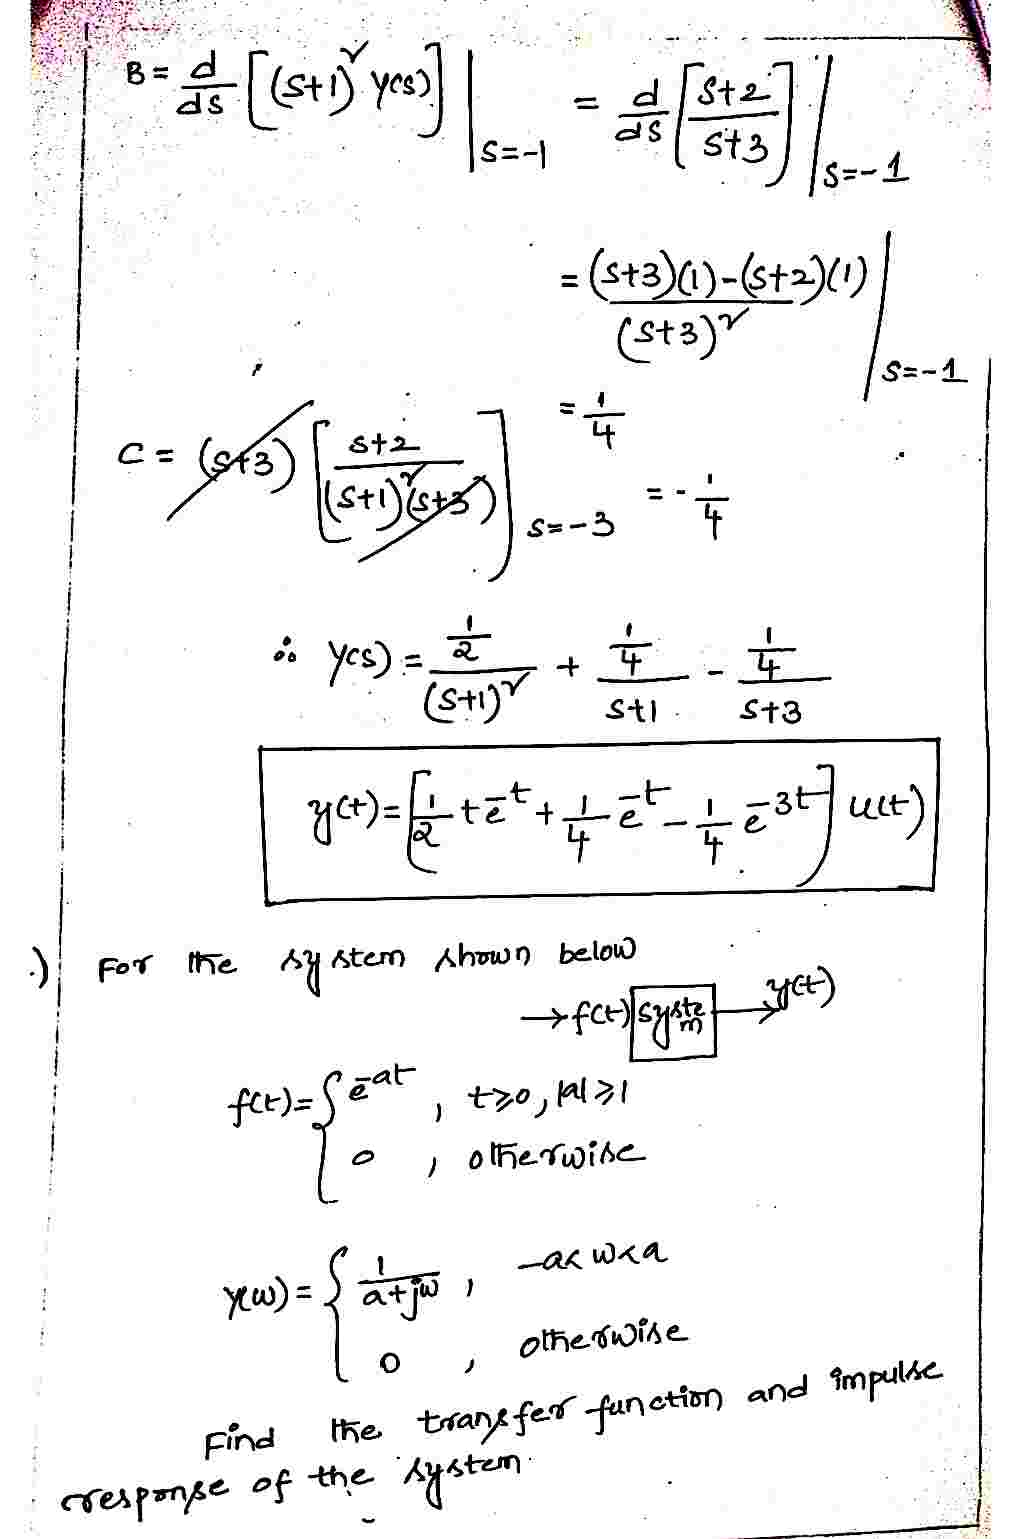 B = d/ds [(s+1)² Y(s)] |s=-1 = d/ds [s+2 / s+3] |s=-1
= (s+3)(1)-(s+2)(1) / (s+3)² |s=-1
= 1/4
C = (s+3) [s+2 / (s+1)²(s+3)] s=-3 = -1/4
∴ Y(s) = 1/2 / (s+1)² + 1/4 / s+1 - 1/4 / s+3
y(t) = [1/2 t e^-t + 1/4 e^-t - 1/4 e^-3t] u(t)
.) For the system shown below
→ f(t) system → y(t)
f(t) = { e^-at , t≥0, |a|≥1
0 , otherwise
Y(w) = { 1/a+jw , -a<w<a
0 , otherwise
Find the transfer function and impulse
response of the system.